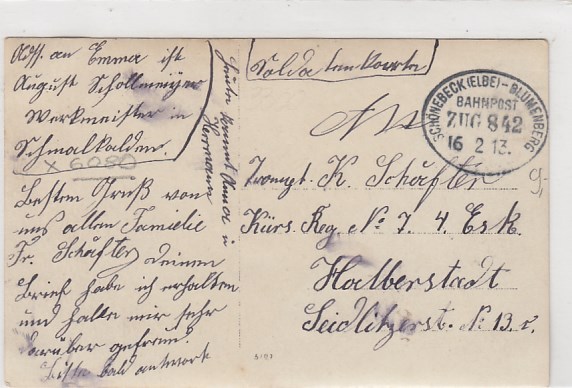 Adss. an Emma ist
August Schollmeyer
Werkmeister in
Schmalkalden.
x 6080
Besten Gruß von
uns allen Familie
Fr. Schäfter, deinen
Brief habe ich erhalten
und habe mir sehr
darüber gefreut.
Bitte bald antwort
heute kommt Anna u
Hermann
Soldatenkarte
SCHÖNEBECK(ELBE)-BLUMENBERG
BAHNPOST
ZUG 842
16 2 13.
An
Trompt. K. Schäfter
Kürs. Reg. No 7. 4. Esk.
Halberstadt
Seidlitzerst. No 13. c.
9,-